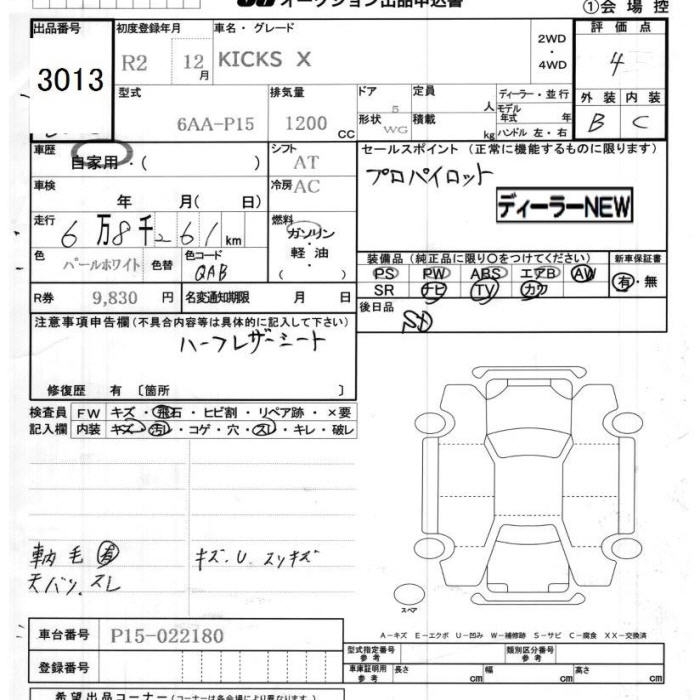 オークション出品申込書
①会場控
出品番号 初度登録年月 車名・グレード 評価点
3013 R2 12月 KICKS X 2WD・4WD 4
型式 排気量 ドア 定員 ディーラー・並行 外装 内装
6AA-P15 1200 CC 5 人 モデル年式 年 B C
形状 WG 積載 kg ハンドル 左・右
車歴 自家用・( ) シフト AT セールスポイント (正常に機能するものに限ります)
車検 年 月( 日) 冷房 AC プロパイロット
ディーラーNEW
走行 6万8千261km 燃料 ガソリン・軽油・( )
色 パールホワイト 色替 色コード QAB
装備品 (純正品に限り○をつけてください) 新車保証書
PS PW ABS エアB AW 有・無
SR ナビ TV カワ
R券 9,830円 名変通知期限 月 日 後日品
注意事項申告欄 (不具合内容等は具体的に記入して下さい)
ハーフレザーシート
修復歴 有 〔箇所 〕
検査員 FW キズ・飛石・ヒビ割・リペア跡・×要
記入欄 内装 キズ・汚レ・コゲ・穴・スレ・キレ・破レ
車内毛有 キズ.U.スリキズ
天バリ.スレ
スペア
A-キズ E-エクボ U-凹み W-補修跡 S-サビ C-腐食 XX-交換済
車台番号 P15-022180
登録番号
型式指定番号 参考 類別区分番号 参考
車庫証明用 参考 長さ cm 幅 cm 高さ cm
希望出品コーナー (コーナーは各会場により異なります)